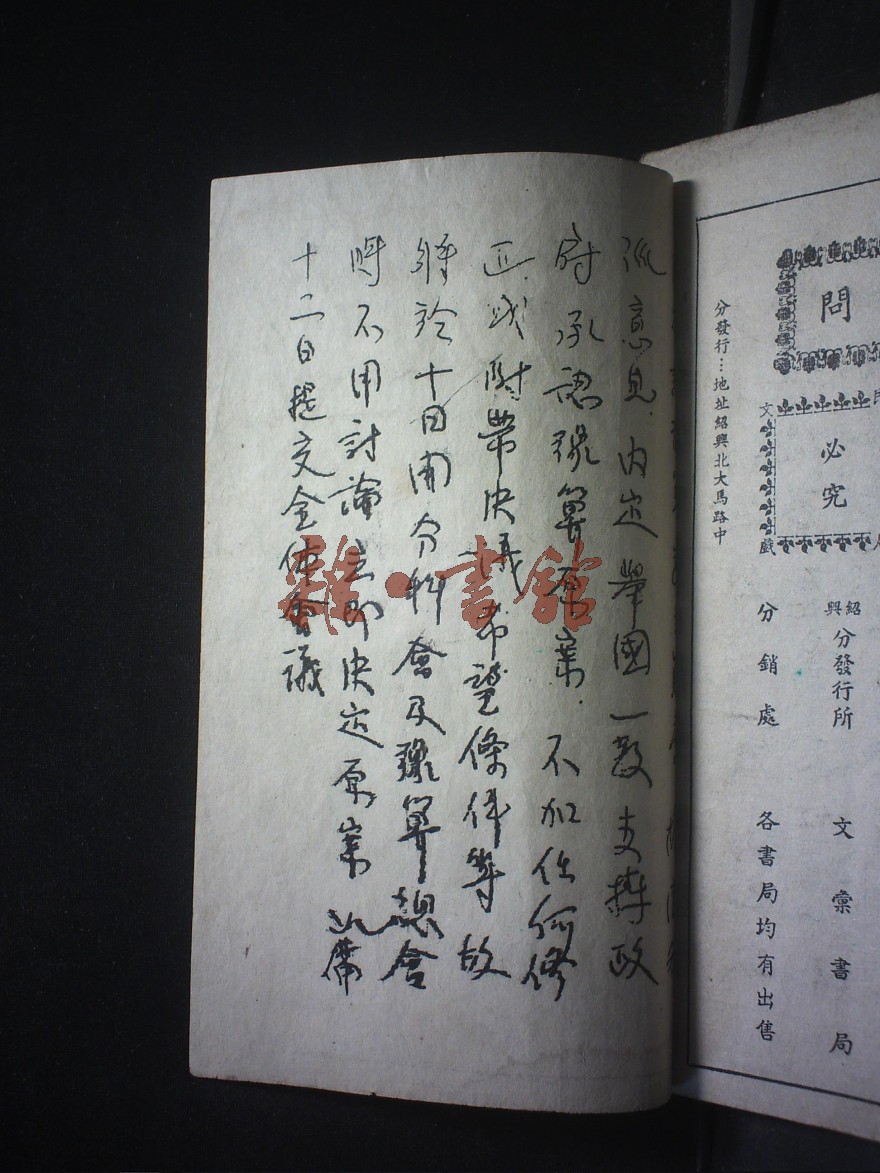 問
必究
紹興
分發行所 文彙書局
分銷處 各書局均有出售
分發行：地址紹興北大馬路中
派意見.内定舉國一致支持政
府承認豫算原案.不加任何修
正.或附帶決議希望條件等故
將於十日開分科會及豫算總會
時不用討論立即決定原案
十二日提交全体會議
雜·書館